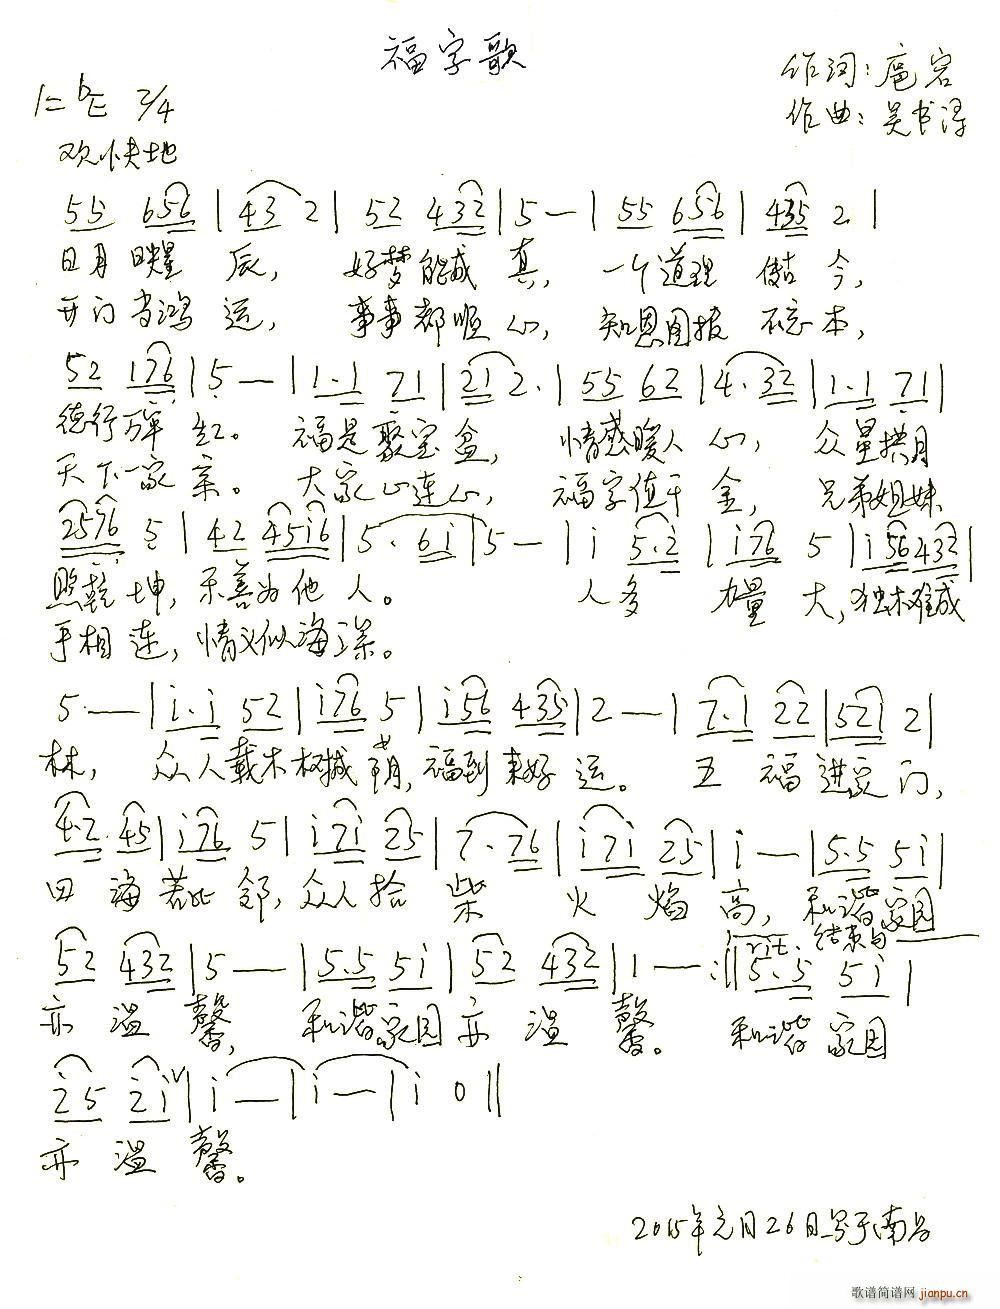 福字歌
作词：扈容
1=♭E 2/4
作曲：吴书得
欢快地
55 656 | 43 2 | 52 432 | 5 — | 55 656 | 435 2 |
日月映星辰，好梦能成真，一个道理传古今，
开门有鸿运，事事都顺心，知恩图报不忘本，
52 176 | 5 — | 1.1 71 | 21 2. | 55 62 | 4.32 | 1.1 71 |
德行万年红。福是聚宝盆，情感暖人心，众星拱月
天下一家亲。大家心连心，福字值千金，兄弟姐妹
2576 5 | 42 45i6 | 5. 6i | 5 — | i 5.2 | i76 5 | i56432 |
照乾坤，乐善为他人。人多力量大，独木难成
手相连，情义似海深。
5 — | i.i 52 | i76 5 | i56 435 | 2 — | 7.1 22 | 52i 2 |
林，众人栽木树成荫，福到来好运。五福进家门，
4.2 45 | i76 5 | i7i 25 | 7.76 | i7i 25 | i — | 5.5 5i |
四海若比邻，众人拾柴火焰高，和谐家园
rit. 结束句
52 432 | 5 — | 5.5 5i | 52 432 | 1 — :‖ 5.5 5i |
亦温馨，和谐家园亦温馨。和谐家园
25 2i | i — | i — | i 0 ‖
亦温馨。
2015年元月26日写于南昌
歌谱简谱网 jianpu.cn